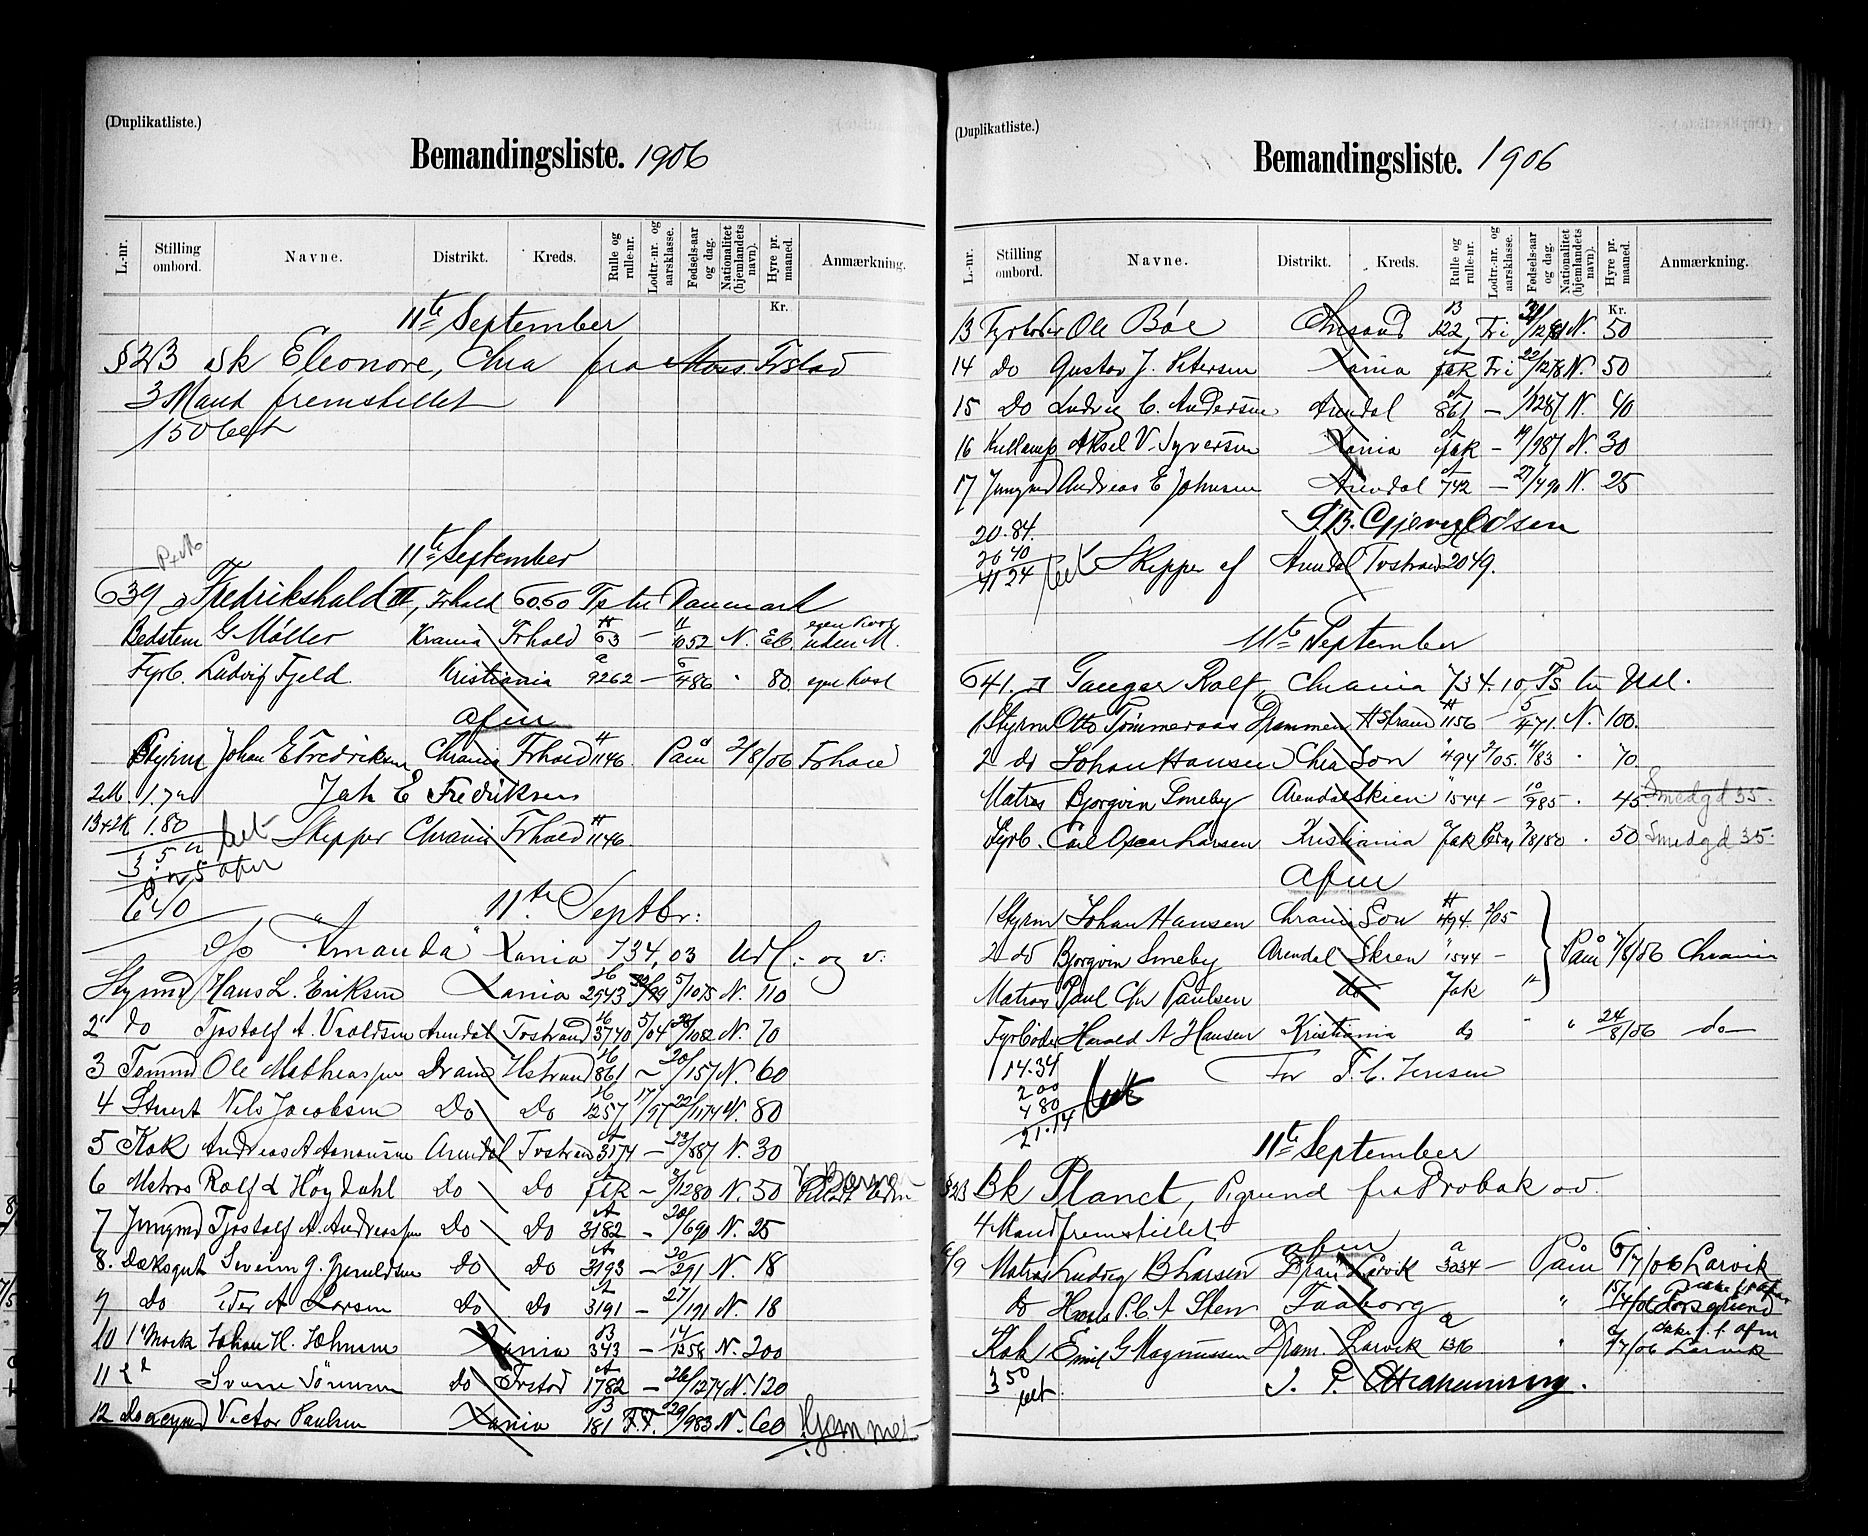 (Duplikatliste.)
Bemandingsliste. 1906
L.-nr. Stilling ombord. Navne. Distrikt. Kreds. Rulle og rulle-nr. Lodtr.-nr. og aarsklasse. Fødsels-aar og dag. Nationalitet (hjemlandets navn). Hyre pr. maaned. Anmærkning.
Kr.
11te September
§23 Sk Eleonore, Chra fra Moss Frstad
3 Mand fremstillet
150 bet
11te September
639 Fredrikshald III, Frhald 60.60 Ts til Danmark
Bedstem G Møller Krania Frhald H 63 — 11/652 N. egen
Fyrb. Ludvig Fjeld. Kristiania a 9262 — 6/486 " 80 egen kost
afm
Styrm Johan E Fredriksen Chrania Frhald H 1146. Paam 2/8/06 Frhald
2M. 1.70 Joh E Fredriksen
1.80 bet Skipper Chrania Frhald H 1146.
3.50
640
11te Septbr:
d/s "Amanda" Xania 734,03 Udl. og v.
Styrmd Hans L. Eriksen Xania H 2943 5/1075 N. 110
2 do Tjostolf A. Vroldsen Arendal Tvstrand H 3740 5/04 28/1082 N. 70
3 Tømmd Ole Mathiassen Dram Hstrand H 861 — 20/157 N. 60
4 Stuert Nils Jacobsen Do Do H 1257 17/97 22/1174 N. 80
5 Kok Andreas A Aanonsen Arendal Tvstrand A 3174 — 23/887 N. 30
6 Matros Rolf L Høydahl Do Do A fak — 3/1280 N. 50
7 Jungmd Tjostolf A. Andreassen Do Do A 3182 — 20/690 N. 25
8. Dæksgut Severin G. Gjeruldsen Do Do A 3193 — 20/291 N. 18
9 Do Peder A Larsen Do Do A 3191 — 27/191 N. 18
10 1' Mask Johan H. Johnsen Xania B 343 — 14/1258 N. 200
11 2' Sverre Sørensen do Frstad A 1782 — 26/1274 N. 120
12 Donkeymd Victor Paulsen Xania B 181 F.F. 29/983 N. 60 Hjemmet
(Duplikatliste.)
Bemandingsliste. 1906
L.-nr. Stilling ombord. Navne. Distrikt. Kreds. Rulle og rulle-nr. Lodtr.-nr. og aarsklasse. Fødsels-aar og dag. Nationalitet (hjemlandets navn). Hyre pr. maaned. Anmærkning.
Kr.
13 Fyrbøder Ole Bøe Chrsand B 122 Fri N. 50
14 do Gustav J. Petersen Xania A fak Fri 22/1278 N. 50
15 Do Ludvig C. Andersen Arendal A 861 — 1/1287 N. 40
16 Kullemp Aksel V. Syversen Xania A fak — 19/987 N. 30
17 Jungmd Andreas E Johnsen Arendal A 742 — 27/490 N. 25
20.84.
20 40
41 24 bet Skipper af Arendal Tvstrand 2049.
11te September
641. Ganger Rolf, Chrania 734.10 Ts til Udl.
1 Styrm Otto Tømmeraas Drammen Hstrand H 1156 — 5/471. N. 100.
2 do Johan Hansen Chra Son " 494 2/05. 4/83 " 70
Matros Bjorgvin Smeby Arendal Skien " 1544 — 10/985 " 45 Smedgd 35.
Fyrb. Carl Oscar Larsen Kristiania fak 7/8/80 " 50 Smedgd 35
afm
1 Styrm Johan Hansen Chrania Son H 494. 2/05
2 do Bjorgvin Smeby Arendal Skien " 1544 — Paam 7/8/06 Chrania
Matros Paul Chr Paulsen do fak "
Fyrbøder Harald A Hansen Kristiania do " " 24/8/06 do
1 14.34 For T. C. Jensen
2 00
4 80 bet
21.14
11te September
§23 Bk Planet, Pgrund fra Drøbak o.v.
4 Mand fremstillet
afm
Matros Ludvig B Larsen Dram Larvik a 3034 — Paam 5/7/06 Larvik
do Hans P. C. A Steen Faaborg " 17/4/06 Porsgrund
Kok Emil G Magnussen Dram. Larvik a 1316 " 9/7/06 Larvik
3 50
bet